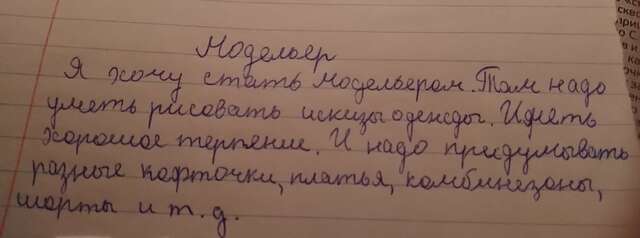 Модельер
Я хочу стать модельером. Там надо
уметь рисовать искизы одежды. Иметь
хорошое терпение. И надо придумывать
разные кофточки, платья, комбинезоны,
шорты и т.д.